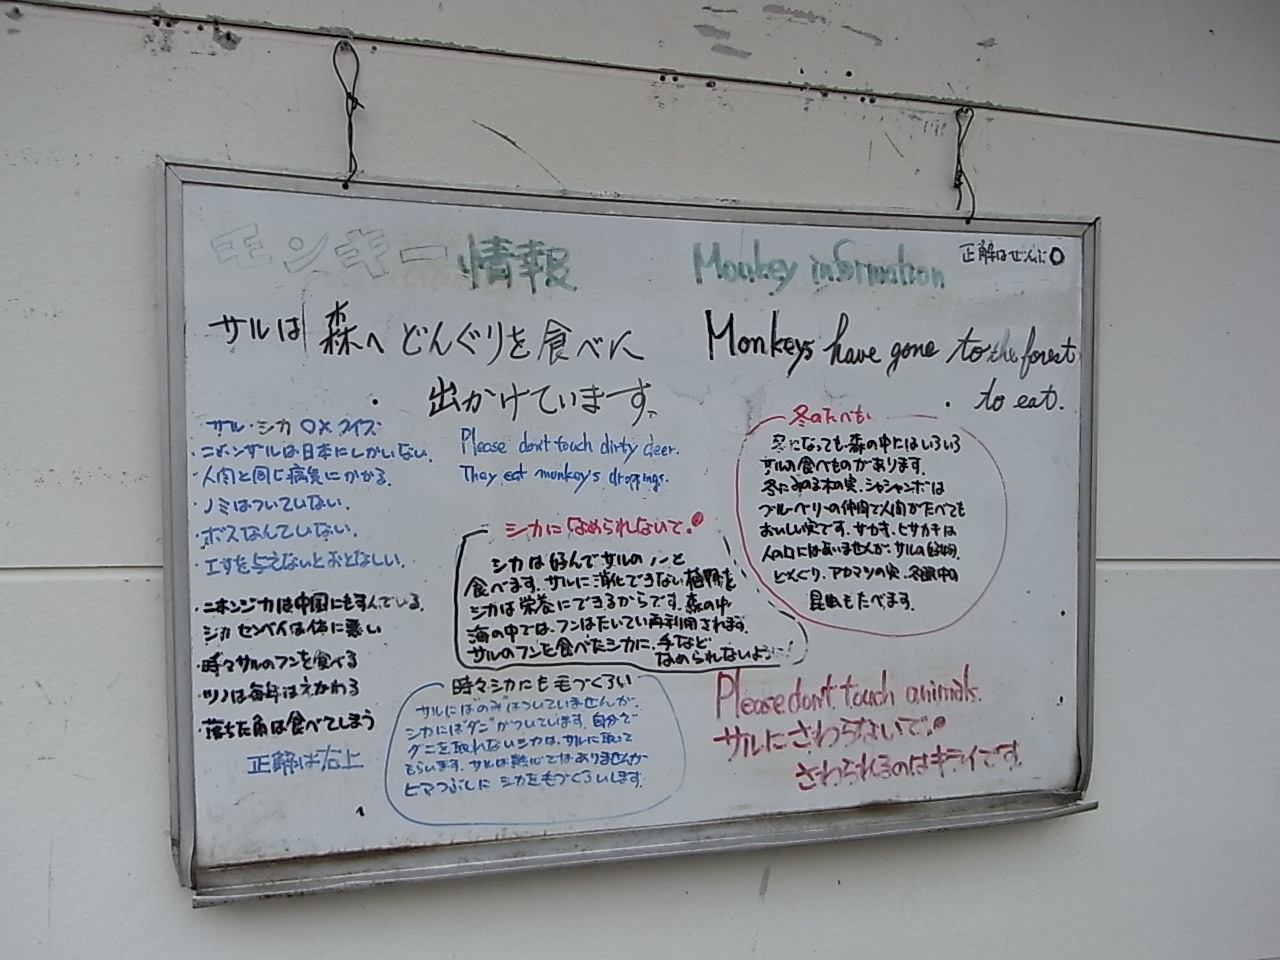 モンキー情報
Monkey information
正解はぜんぶ〇
サルは森へどんぐりを食べに
出かけています。
Monkeys have gone to the forest
to eat.
サル・シカ 〇×クイズ
・ニホンザルは日本にしかいない。
・人間と同じ病気にかかる。
・ノミはついていない。
・ボスなんていない。
・エサを与えないとおとなしい。
・ニホンジカは中国にもすんでいる。
・シカセンベイは体に悪い
・時々サルのフンを食べる
・ツノは毎年はえかわる
・落ちた角は食べてしまう
正解は右上
Please don't touch dirty deer.
They eat monkey's droppings.
シカになめられないで。
シカは好んでサルのフンを
食べます。サルに消化できない植物を
シカは栄養にできるからです。森の中
海の中では、フンはたいてい再利用されます。
サルのフンを食べたシカに、手など
なめられないように!
時々シカにも毛づくろい
サルには"のみ"はついていませんが、
シカには"ダニ"がついています。自分で
ダニを取れないシカは、サルに取って
もらいます。サルは熱心ではありませんが
ヒマつぶしに シカを毛づくろいします。
冬のたべもの
冬になっても森の中にはいろいろ
サルの食べものがあります。
冬にみのる木の実、シャシャンボは
ブルーベリーの仲間で人間がたべても
おいしい実です。サカキ、ヒサカキは
人の口にはあいませんが、サルの好物。
どんぐり、アカマツの実、冬眠中の
昆虫もたべます。
Please don't touch animals.
サルにさわらないで。
さわられるのはキライです。